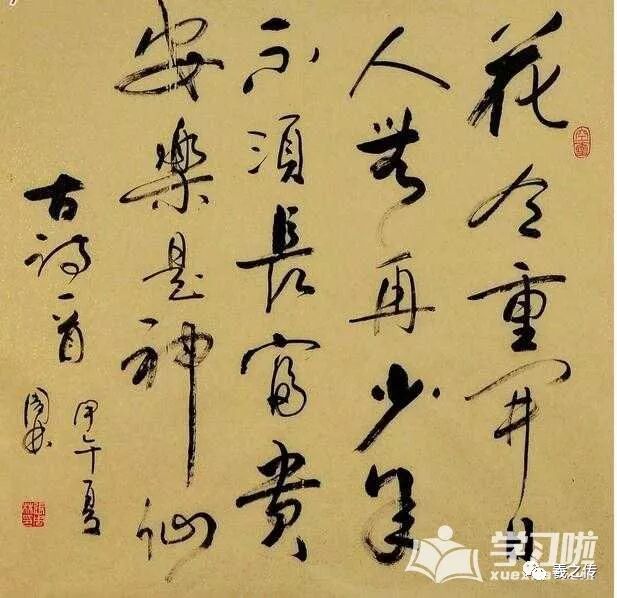 花会重開日
人無再少年
不須長富貴
安樂是神仙
古詩一首
甲午夏
学习啦
羲之传